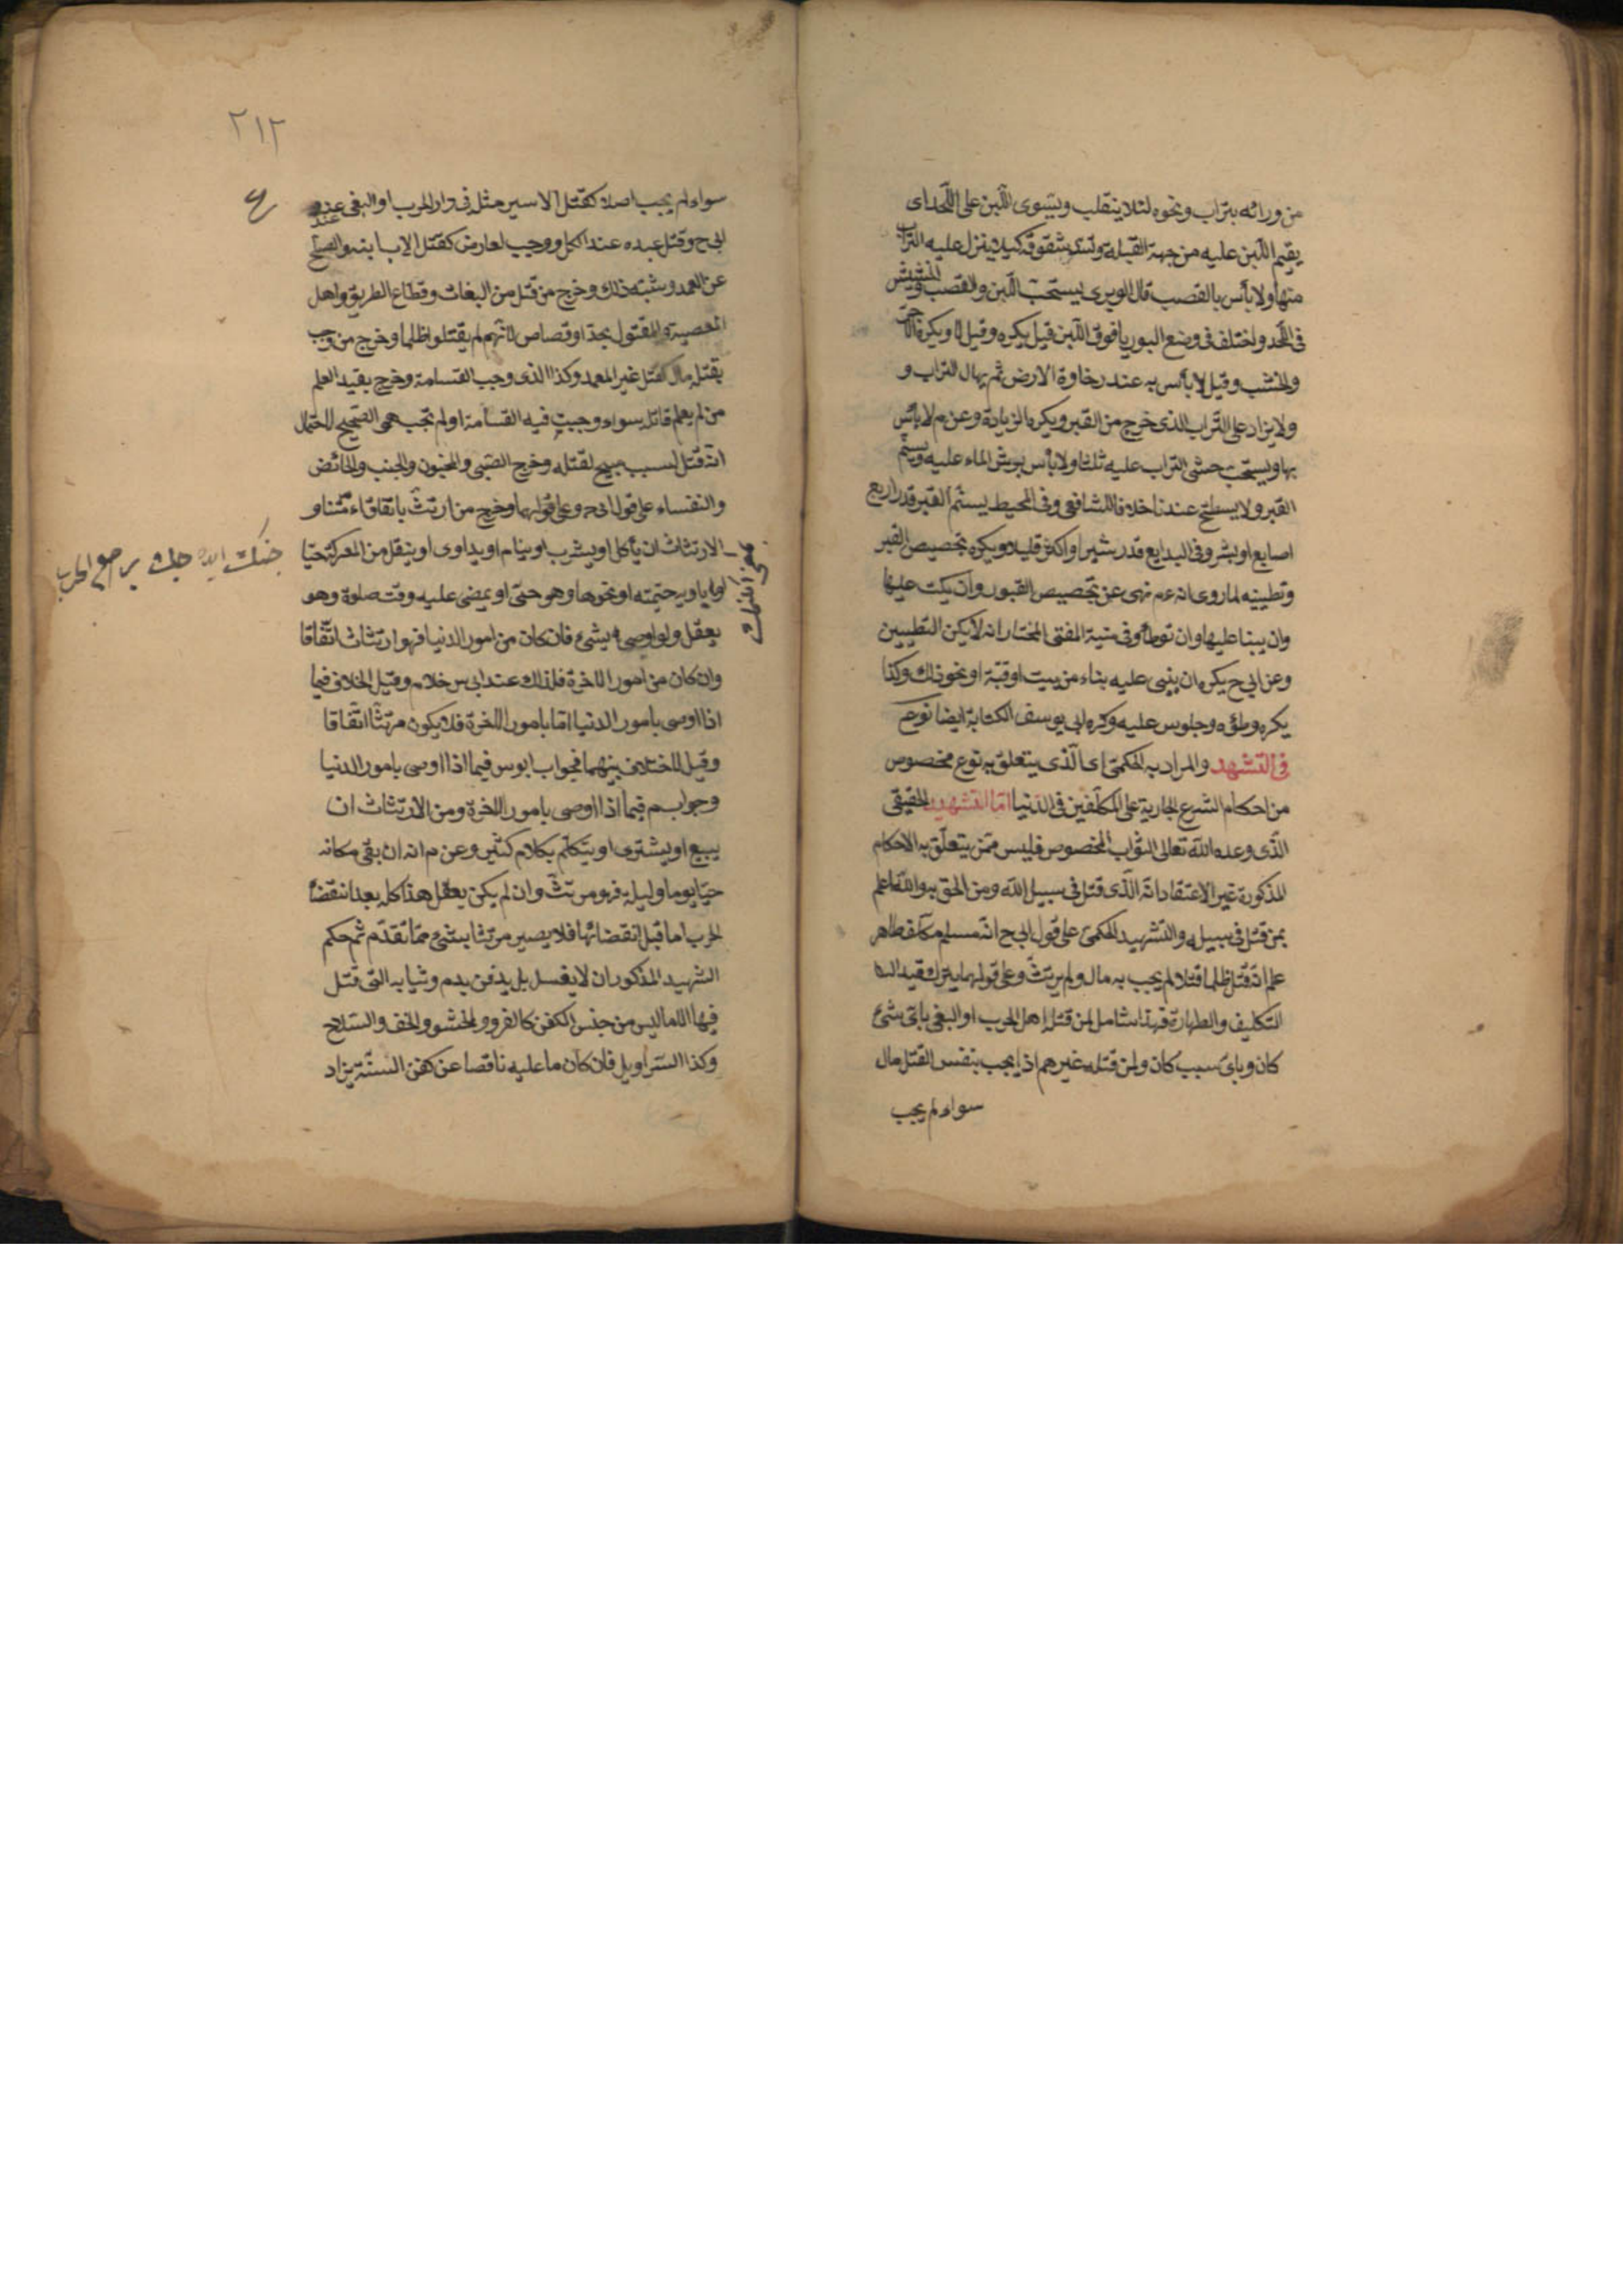 من ورائه بتراب ونحوه لئلا ينقلب ويسوى اللبن على اللحد اى
يقيم اللبن عليه من جهة القبلة وتسد شقوقه كيلا ينزل عليه التراب
منها ولا بأس بالقصب قال الوبرى يستحب اللبن والقصب والحشيش
فى اللحد واختلف فى وضع البوريا فوق اللبن قيل يكره وقيل لا ويكره الآجر
والخشب وقيل لا بأس به عند رخاوة الارض ثم يهال التراب و
ولا يزاد على التراب الذى خرج من القبر ويكره الزيادة وعن م لا بأس
بها ويستحب حثى التراب عليه ثلثا ولا بأس برش الماء عليه ويسنم
القبر ولا يسطح عندنا خلافا للشافعى وفى المحيط يسنم القبر قدر اربع
اصابع او بشر وفى البدايع قدر شبر او اكثر قليلا ويكره تجصيص القبر
وتطيينه لما روى انه عم نهى عن تجصيص القبور وان يكتب عليها
وان يبنا عليها وان توطأ وفى منية المفتى المختار انه لا يكره التطيين
وعن ابى ح يكره ان يبنى عليه بناء من بيت او قبة او نحو ذلك وكذا
يكره وطؤه وجلوس عليه وكره ابى يوسف الكتابة ايضا نوع
فى الشهيد والمراد به الحكمى اى الذى يتعلق به نوع مخصوص
من احكام الشرع الجارية على المكلفين فى الدنيا اما الشهيد الحقيقى
الذى وعده الله تعالى الثواب المخصوص فليس ممن يتعلق به الاحكام
المذكورة غير الاعتقاد انه الذى قتل فى سبيل الله ومن الحق به والله اعلم
بمن قتل فى سبيله والشهيد الحكمى على قول ابى ح انه مسلم مكلف طاهر
علم انه قتل ظلما قتلا لم يجب به مال ولم يرتث وعلى قولهما يترك قيد
التكليف والطهارة فهذا شامل لمن قتله اهل الحرب او البغى باى شئ
كان وباى سبب كان ولمن قتله غيرهم اذا يجب بنفس القتل مال
سواء لم يجب
٢١٢
سواء لم يجب اصلا كقتل الاسير مثله فى دار الحرب او البغى عند
ابى ح وقتل عبده عند الكل او وجب لعارض كقتل الاب ابنه والصلح
عن العمد وشبه ذلك وخرج من قتل من البغات وقطاع الطريق واهل
العصبية والمقتول بحد او قصاص لانهم لم يقتلوا ظلما وخرج من وجب
بقتله مال كقتل غير العمد وكذا الذى وجب القسامة وخرج بقيد العلم
من لم يعلم قاتله سواء وجبت فيه القسامة او لم تجب هو الصحيح لاحتمال
انه قتل لسبب مبيح لقتله وخرج الصبى والمجنون والجنب والحائض
والنفساء على قول ابى ح وعلى قولهما وخرج من ارتث باتفاق
الارتثاث ان يأكل او يشرب او ينام او يداوى او ينقل من المعركة حيا
او ياويه خيمته او نحوها وهو حى او يمضى عليه وقت صلوة وهو
يعقل ولو اوصى بشئ فان كان من امور الدنيا فهو ارتثاث اتفاقا
وان كان من امور الاخرة فكذلك عند ابى س خلافا م وقيل الخلاف فيما
اذا اوصى بامور الدنيا اما بامور الاخرة فلا يكون مرتثا اتفاقا
وقيل لا خلاف بينهما فجواب ابو س فيما اذا اوصى بامور الدنيا
وجواب م فيما اذا اوصى بامور الاخرة ومن الارتثاث ان
يبيع او يشترى او يتكلم بكلام كثير وعن م انه ان بقى مكانه
حيا يوما وليلة فهو مرتث وان لم يكن يعقل هذا كله بعد انقضاء
الحرب اما قبل انقضائها فلا يصير مرتثا بشئ مما تقدم ثم حكم
الشهيد المذكور ان لا يغسل بل يدفن بدمه وثيابه التى قتل
فيها الا ما ليس من جنس الكفن كالفرو والحشو والخف والسلاح
وكذا السراويل فان كان ما عليه ناقصا عن كفن السنة يزاد